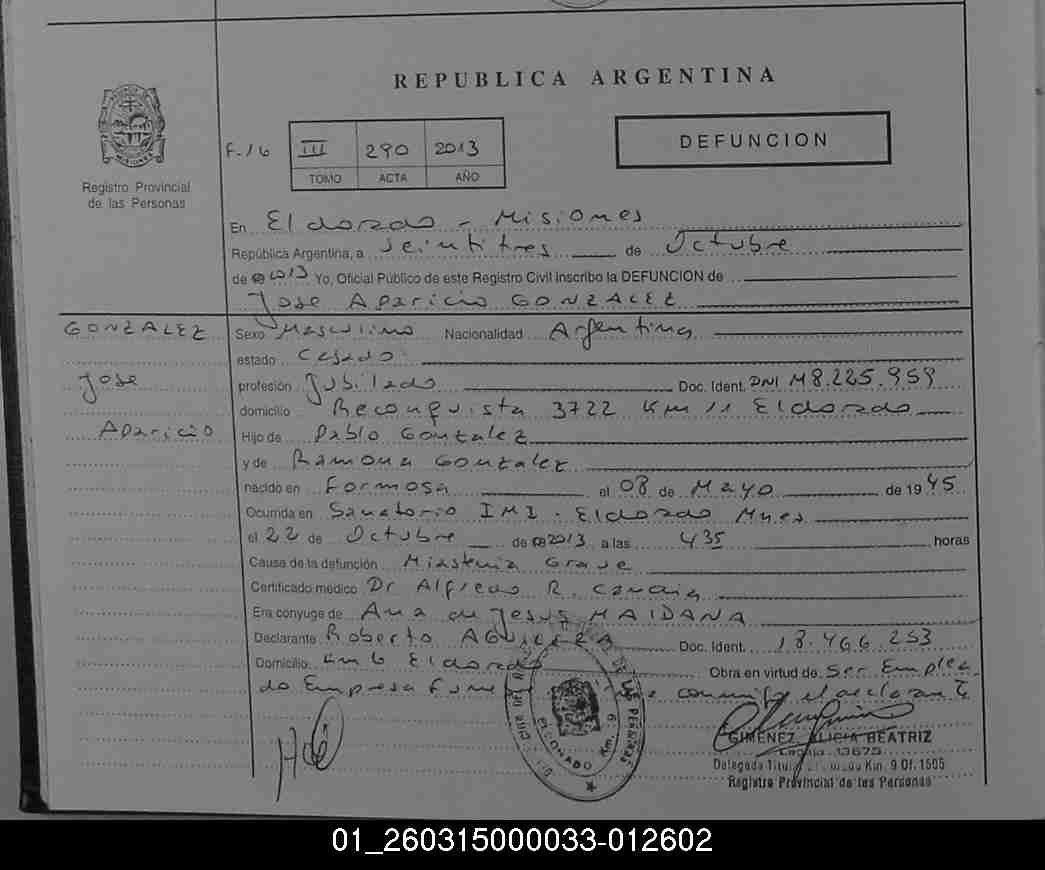 REPUBLICA ARGENTINA
F.16 III 290 2013
TOMO ACTA AÑO
DEFUNCION
Registro Provincial
de las Personas
En Eldorado - Misiones
República Argentina, a veintitres de Octubre
de 2013 Yo, Oficial Público de este Registro Civil inscribo la DEFUNCION de
Jose Aparicio GONZALEZ
GONZALEZ
Jose
Aparicio
Sexo Masculino Nacionalidad Argentina
estado Casado
profesión Jubilado Doc. Ident. DNI M8.225.959
domicilio Reconquista 3722 Km 11 Eldorado
Hijo de Pablo Gonzalez
y de Ramona Gonzalez
nacido en Formosa el 08 de Mayo de 1945
Ocurrida en Sanatorio IMI - Eldorado Mnes
el 22 de Octubre de 2013 a las 435 horas
Causa de la defunción Miastenia Grave
Certificado médico Dr Alfredo R.
Era cónyuge de Ana de Jesus MAIDANA
Declarante Roberto AGUILERA Doc. Ident. 18.466.253
Domicilio Km 6 Eldorado Obra en virtud de Ser Emplea
do Empresa el declarante
GIMENEZ ALICIA BEATRIZ
Legajo 13675
Delegada Titular Km. 9 Of. 1505
Registro Provincial de las Personas
01_260315000033-012602